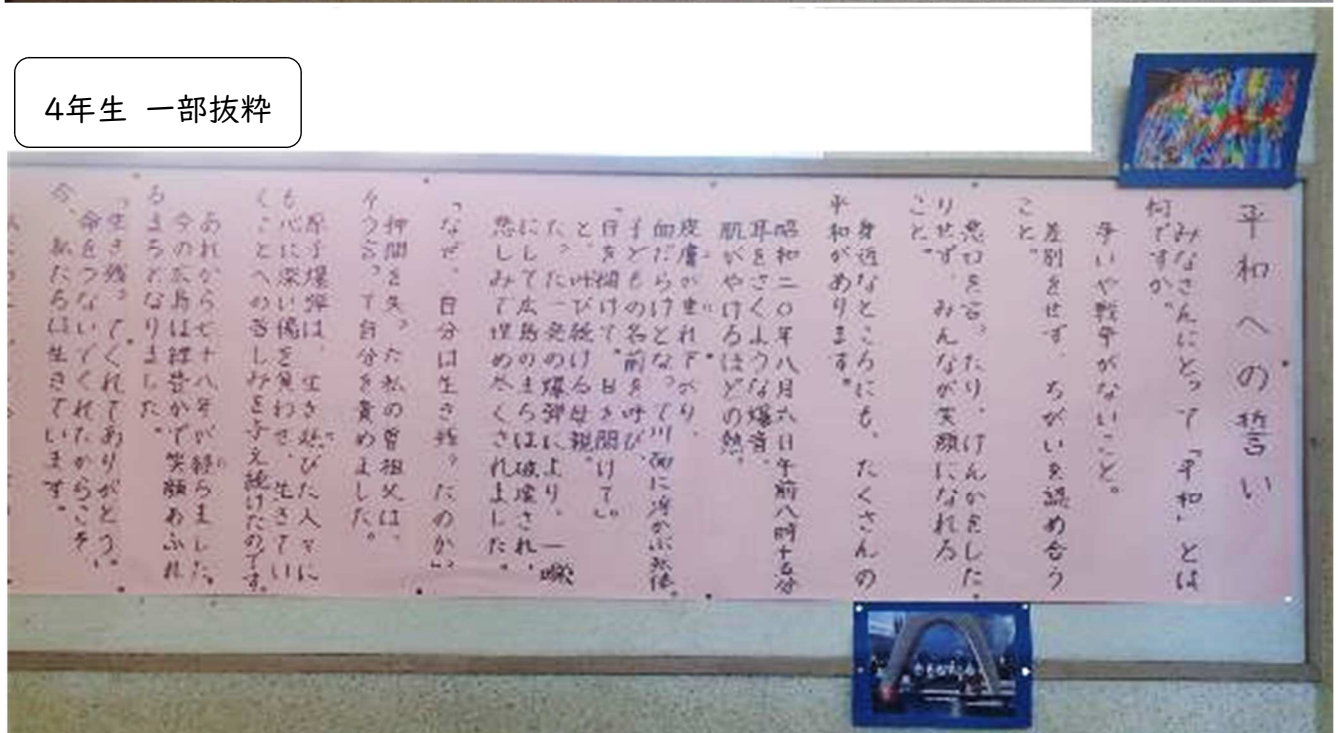 4年生 一部抜粋
平和への誓い
みなさんにとって「平和」とは
何ですか。
争いや戦争がないこと。
差別をせず、ちがいを認め合う
こと。
悪口を言ったり、けんかをした
りせず、みんなが笑顔になれる
こと。
身近なところにも、たくさんの
平和があります。
昭和二〇年八月六日午前八時十五分
耳をさくような爆音、
肌がやけるほどの熱。
皮膚が垂れ下がり、
血だらけとなって川面に浮かぶ死体。
子どもの名前を呼び、
「目を開けて。目を開けて。」
と、叫び続ける母親。
たった一発の爆弾により、一瞬
にして広島のまちは破壊され、
悲しみで埋め尽くされました。
「なぜ、自分は生き残ったのか。」
仲間を失った私の曽祖父は、
そう言って自分を責めました。
原子爆弾は、生き延びた人々に
も心に深い傷を負わせ、生きてい
くことへの苦しみを与え続けたのです。
あれから七十八年が経ちました。
今の広島は緑豊かで笑顔あふれ
るまちとなりました。
「生き残ってくれてありがとう。」
命をつないでくれたからこそ、
今、私たちは生きています。